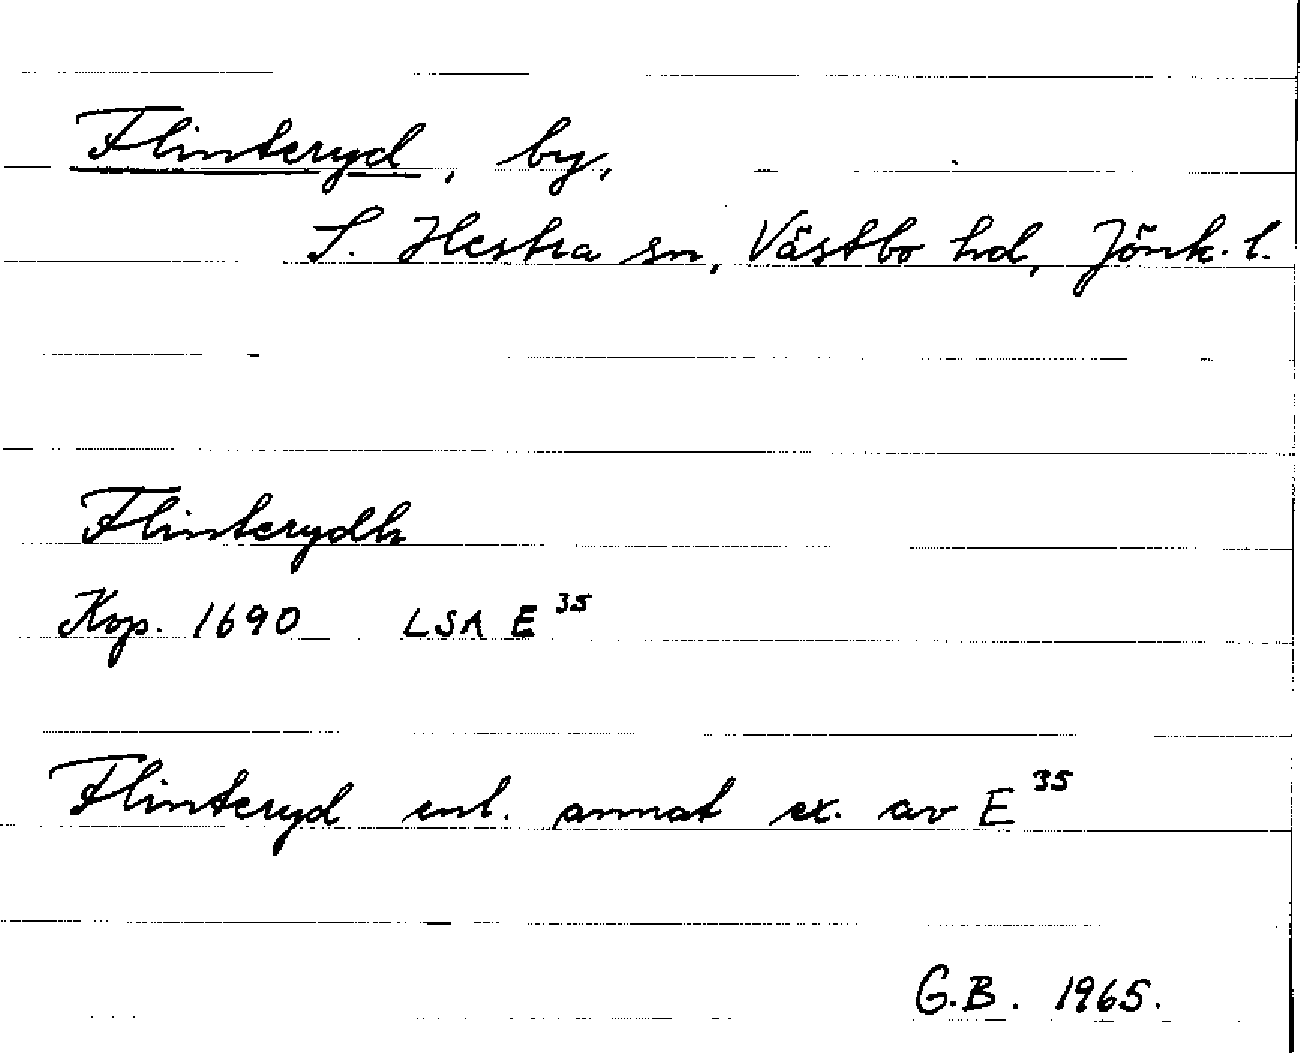 Flinteryd, by,
S. Hestra sn, Västbo hd, Jönk. l.
Flinterydh
Kop. 1690 LSA E 35
Flinteryd enl. annat ex. av E 35
G.B. 1965.